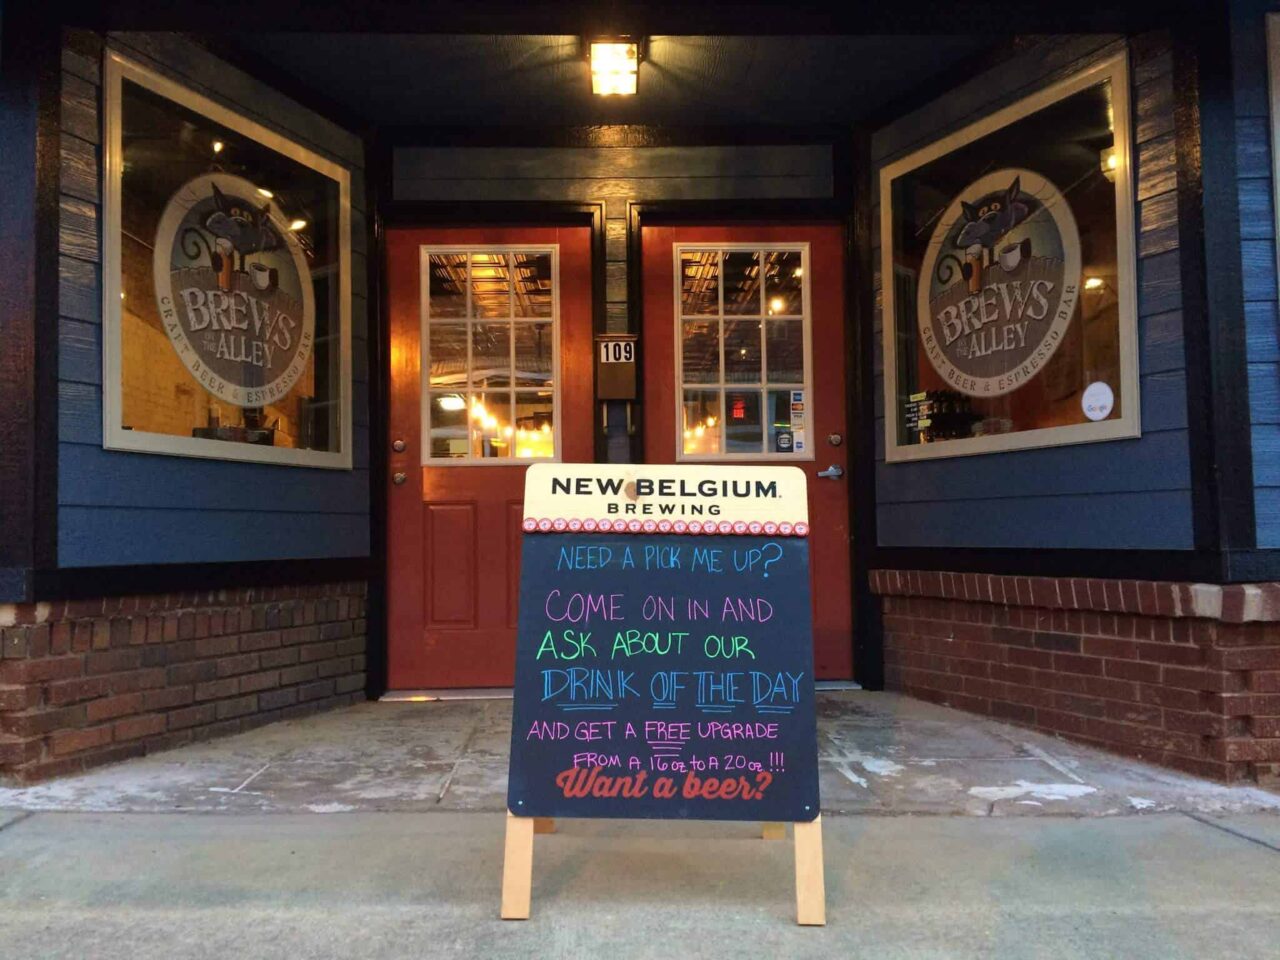 BREWS
IN THE
ALLEY
CRAFT BEER & ESPRESSO BAR
109
BREWS
IN THE
ALLEY
CRAFT BEER & ESPRESSO BAR
Google
NEW BELGIUM
BREWING
NEED A PICK ME UP?
COME ON IN AND
ASK ABOUT OUR
DRINK OF THE DAY
AND GET A FREE UPGRADE
FROM A 16 oz to A 20 oz !!!
Want a beer?